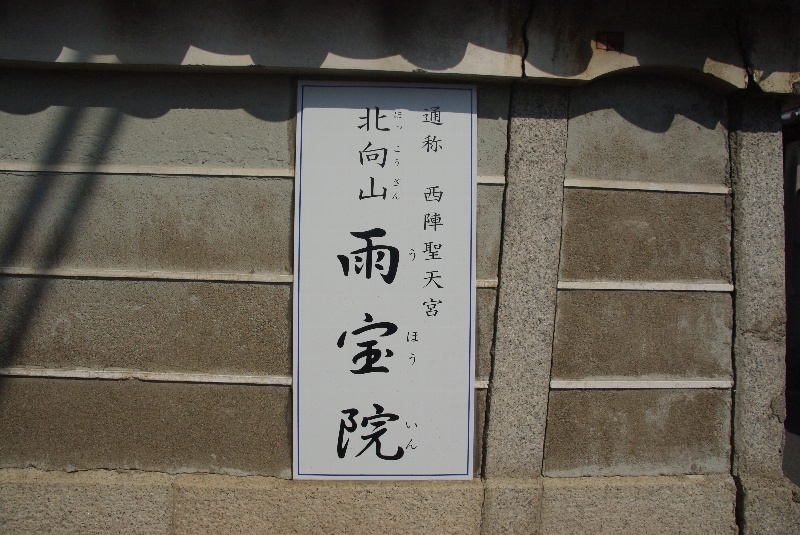 通称 西陣聖天宮
北向山 雨宝院
ほっこうさん う ほう いん